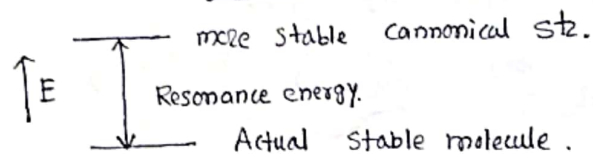 more stable cannonical str.
E
Resonance energy.
Actual stable molecule.